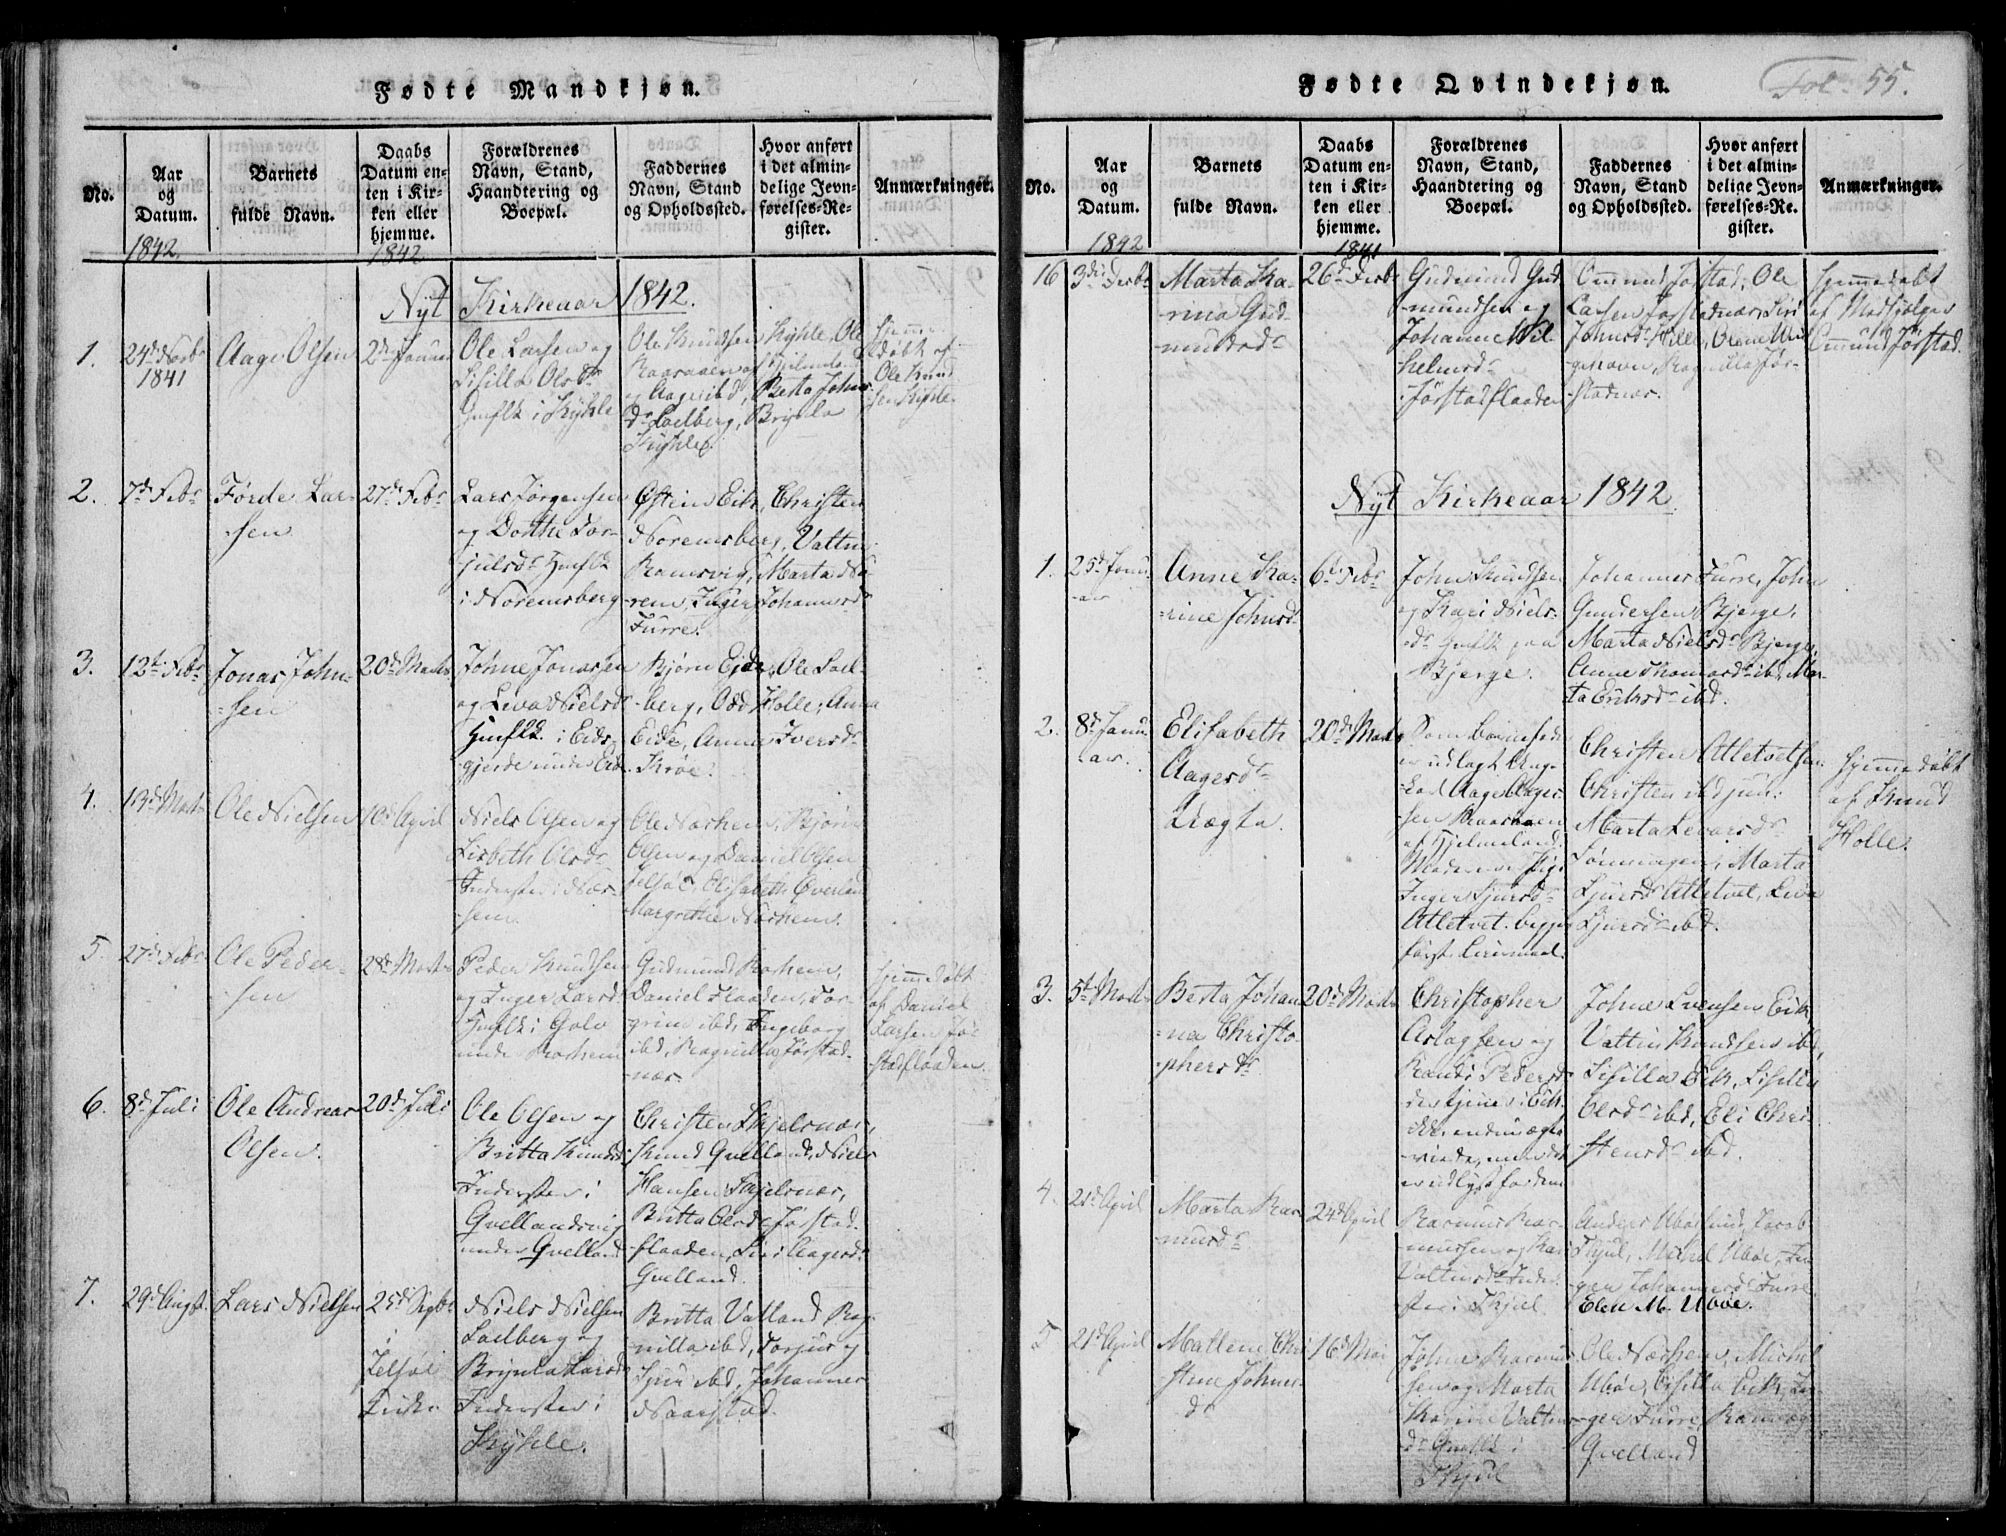 Fødte Mandkjøn.
No.
Aar
og
Datum.
Barnets
fulde Navn.
Daabs
Datum en-
ten i Kir-
ken eller
hjemme.
Forældrenes
Navn, Stand,
Haandtering og
Boepæl.
Faddernes
Navn, Stand
og Opholdssted.
Hvor anført
i det almin-
delige Jevn-
førelses-Re-
gister.
Anmærkninger.
1842.
1842
Nyt Kirkeaar 1842.
1.
24d Novbr
1841
Aage Olsen
2d Januar
Ole Larsen og
Sisilla Olsdr
Gmflk i Kyhle
Ole Knudsen Kyhle, Ole
Raaraaen af Hjelmeland
og Aage ibd, Berta Johns-
dr Lælberg, Brynla
Kyhle.
Hjemme-
døbt af
Ole Knud-
sen Kyhle.
2.
7d Febr
Førde Lar-
sen
27d Febr
Lars Jørgensen
og Dorthe Tor-
juilsdr Hmflk
i Noremsberg
Østein Eik, Christen
Noremsberg, Valtin
Ramsvig, Marta No-
rem, Inger Johannesdr
Furre.
3.
12t Febr
Jonas John-
sen
20d Marts
Johne Jonassen
og Liva Nielsdr
Hmflk i Eids-
gjerde under Eide.
Bjørn Eide, Ole Læl-
berg, Odd Holle, Anna
Eide, Anna Iversdr
Krøe.
4.
13d Marts
Ole Nielsen
10d April
Niels Olsen og
Lisbeth Olsdr
Inderster i Nær-
hem
Ole Nærhem, Bjørn
Olsen og Daniel Olsen
Jelsøe, Elisabeth Øverland
Margrethe Nærhem.
5.
27d Febr
Ole Peder-
sen
28d Marts
Peder Knudsen
og Inger Larsdr
Hmflk i Golv
under Børhem
Gudmund Børhem,
Daniel Flaaden, Tor-
grim ibd, Ingeborg
ibd, Ragnilla Jørstad-
nær.
Hjemmedøbt
af Daniel
Larsen Jø-
stadflaaden.
6.
8d Juli
Ole Andreas
Olsen.
20d Juli
Ole Olsen og
Britta Knudsdr
Inderster i
Qvellandsvig
under Qvelland
Christen Skjelsnær,
Knud Qvelland, Niels
Hansen Skjelsnær,
Britta Olsdr Jøstad-
flaaden, Siri Aagesdr
Qvelland.
7.
29d Augst
Lars Nielsen
25d Septbr
i
Jelsøe
Kirke
Niels Nielsen
Lælberg og
Brynla Larsdr
Inderster i
Kyhle.
Britta Vatland Rag-
nilla ibd, Torjus og
Sjur ibd, Johannes
Naarstad.
Fødte Qvindekjøn.
Fol. 55.
No.
Aar
og
Datum.
Barnets
fulde Navn.
Daabs
Datum en-
ten i Kir-
ken eller
hjemme.
Forældrenes
Navn, Stand,
Haandtering og
Boepæl.
Faddernes
Navn, Stand
og Opholdssted.
Hvor anført
i det almin-
delige Jevn-
førelses-Re-
gister.
Anmærkninger.
1842
1841
16
3die Decbr
Marta Ka-
rina Gud-
mundsdr
26d Decbr
Gudmund Gud-
mundsen og
Johanne Wil-
helmsdr
Jørstadflaaden
Ommund Jøstad, Ole
Larsen Jøstadnær, Siri
Johnsdr Hille, Olene Min-
gehavn, Ragnilla Jør-
stadnær.
Hjemmedøbt
af Medhjelper
Ommund Jørstad.
Nyt Kirkeaar 1842.
1.
25d Janu-
ar
Anne Ka-
rine Johnsdr
6te Febr
John Knudsen
og Kari Niels-
dr Gmflk paa
Bjerge.
Johannes Furre, John
Gundersen Bjerge,
Marta Nielsdr Bjerge,
Anne Thomasdr ibd, Mar-
ta Eriksdr ibd.
2.
8d Janu-
ar.
Elisabeth
Aagesdr
Uægta.
20d Marts
Som Barnefader
er udlagt Unge
Karl Aage Aages-
sen Raaraaen
af Hjelmeland.
Moderen er Pige
Inger Sjursdr
Atletvet. begges
første Leiermaal.
Christen Atletvetsen
Christen ibd jun:
Marta Levarsdr
Lønningen, Marta
Sjursdr Atletvet, Liva
Sjursdr ibd.
Hjemmedøbt
af Knud
Holle.
3.
5t Marts
Berta Johan-
na Christo-
phersdr
20d Marts
Christopher
Aslagsen og
Randi Pedersdr
der tjener i Eik
ikke endnu ægte-
viede, men det
er udlyst for dem
Johne Svensen Eik,
Valtin Knudsen ibd,
Sisilla Eik, Sisilla
Olsdr ibd, Eli Chri-
stensdr ibd.
4.
21d April
Marta Ras-
musdr
24d April
Rasmus Ras-
mussen og Kari
Valtinsdr Inder-
ster i Skjul
Anders Ubøelund, Jacob
Skjul, Michel Ubøe, In-
ger Johannesdr Furre
Elen M. Ubøe.
5
21d April
Mallene Chri-
stine Johns-
dr
16d Mai
Johne Rasmus-
sen og Marta
Karine Valtins-
dr Gmflk i
Skjul
Ole Nærhem, Michel
Ubøe, Sisilla Eik, In-
ger Furre, Ramveg
Qvelland